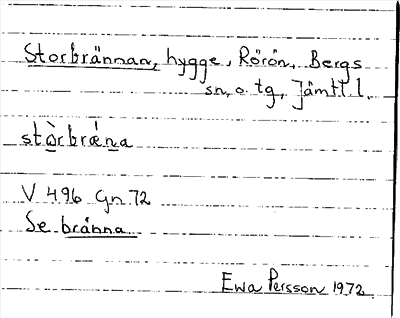 Storbrännan, hygge, Rörön, Bergs
sn, o. tg, Jämtl. l.
stò̱rbrǽn̲a
V 496 Gn 72
Se bränna
Ewa Persson 1972.